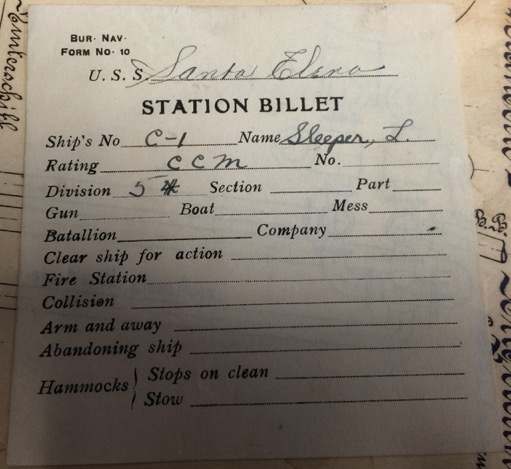 BUR· NAV·
FORM NO· 10
U. S. S. Santa Elena
STATION BILLET
Ship's No C-1 Name Sleeper, L.
Rating C C M No.
Division 5 Section Part
Gun Boat Mess
Batallion Company
Clear ship for action
Fire Station
Collision
Arm and away
Abandoning ship
Hammocks Stops on clean
Stow